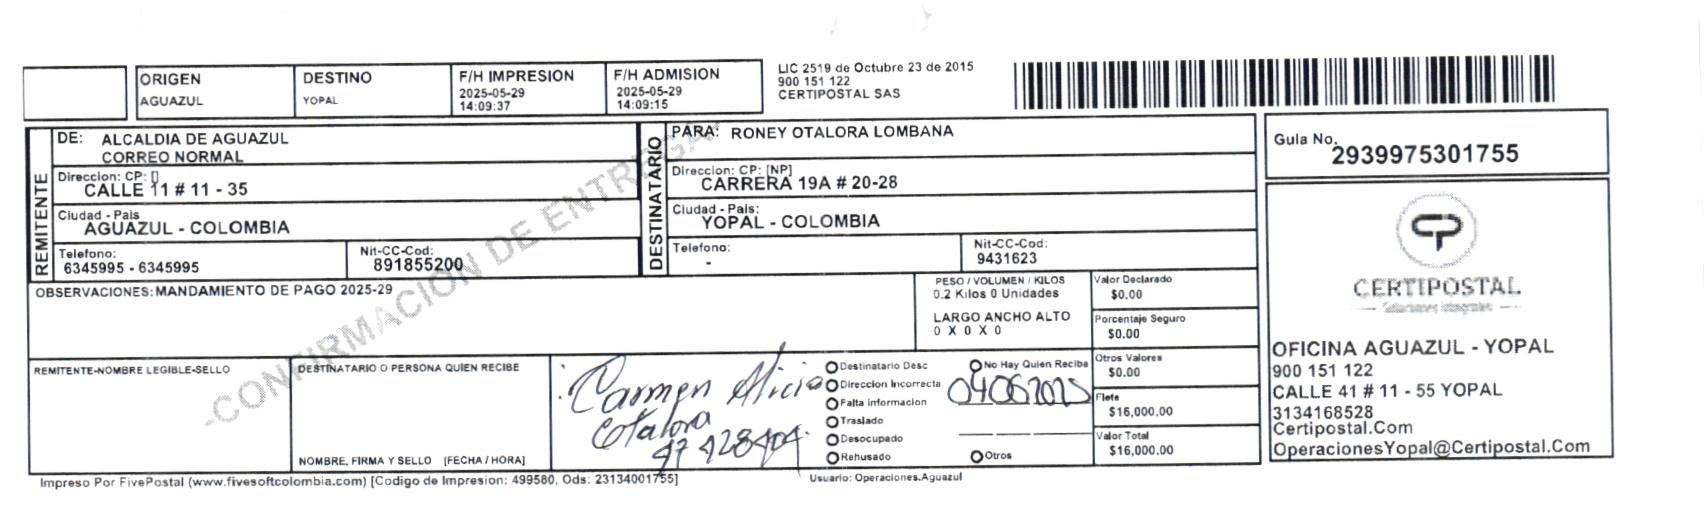 ORIGEN
AGUAZUL
DESTINO
YOPAL
F/H IMPRESION
2025-05-29
14:09:37
F/H ADMISION
2025-05-29
14:09:15
LIC 2519 de Octubre 23 de 2015
900 151 122
CERTIPOSTAL SAS
REMITENTE
DE: ALCALDIA DE AGUAZUL
CORREO NORMAL
Direccion: CP: []
CALLE 11 # 11 - 35
Ciudad - Pais
AGUAZUL - COLOMBIA
Telefono:
6345995 - 6345995
Nit-CC-Cod:
891855200
DESTINATARIO
PARA: RONEY OTALORA LOMBANA
Direccion: CP: [NP]
CARRERA 19A # 20-28
Ciudad - Pais:
YOPAL - COLOMBIA
Telefono:
-
Nit-CC-Cod:
9431623
Guia No.
2939975301755
-CONFIRMACION DE ENTREGA-
OBSERVACIONES: MANDAMIENTO DE PAGO 2025-29
PESO / VOLUMEN / KILOS
0.2 Kilos 0 Unidades
LARGO ANCHO ALTO
0 X 0 X 0
Valor Declarado
$0.00
Porcentaje Seguro
$0.00
Otros Valores
$0.00
Flete
$16,000.00
Valor Total
$16,000.00
REMITENTE-NOMBRE LEGIBLE-SELLO
DESTINATARIO O PERSONA QUIEN RECIBE
NOMBRE, FIRMA Y SELLO [FECHA / HORA]
Carmen Alicia
Otalora
47428404
Destinatario Desc
Direccion Incorrecta
Falta informacion
Traslado
Desocupado
Rehusado
No Hay Quien Reciba
04062025
Otros
CERTIPOSTAL
Soluciones Integrales
OFICINA AGUAZUL - YOPAL
900 151 122
CALLE 41 # 11 - 55 YOPAL
3134168528
Certipostal.Com
OperacionesYopal@Certipostal.Com
Impreso Por FivePostal (www.fivesoftcolombia.com) [Codigo de Impresion: 499580, Ods: 23134001755]
Usuario: Operaciones.Aguazul